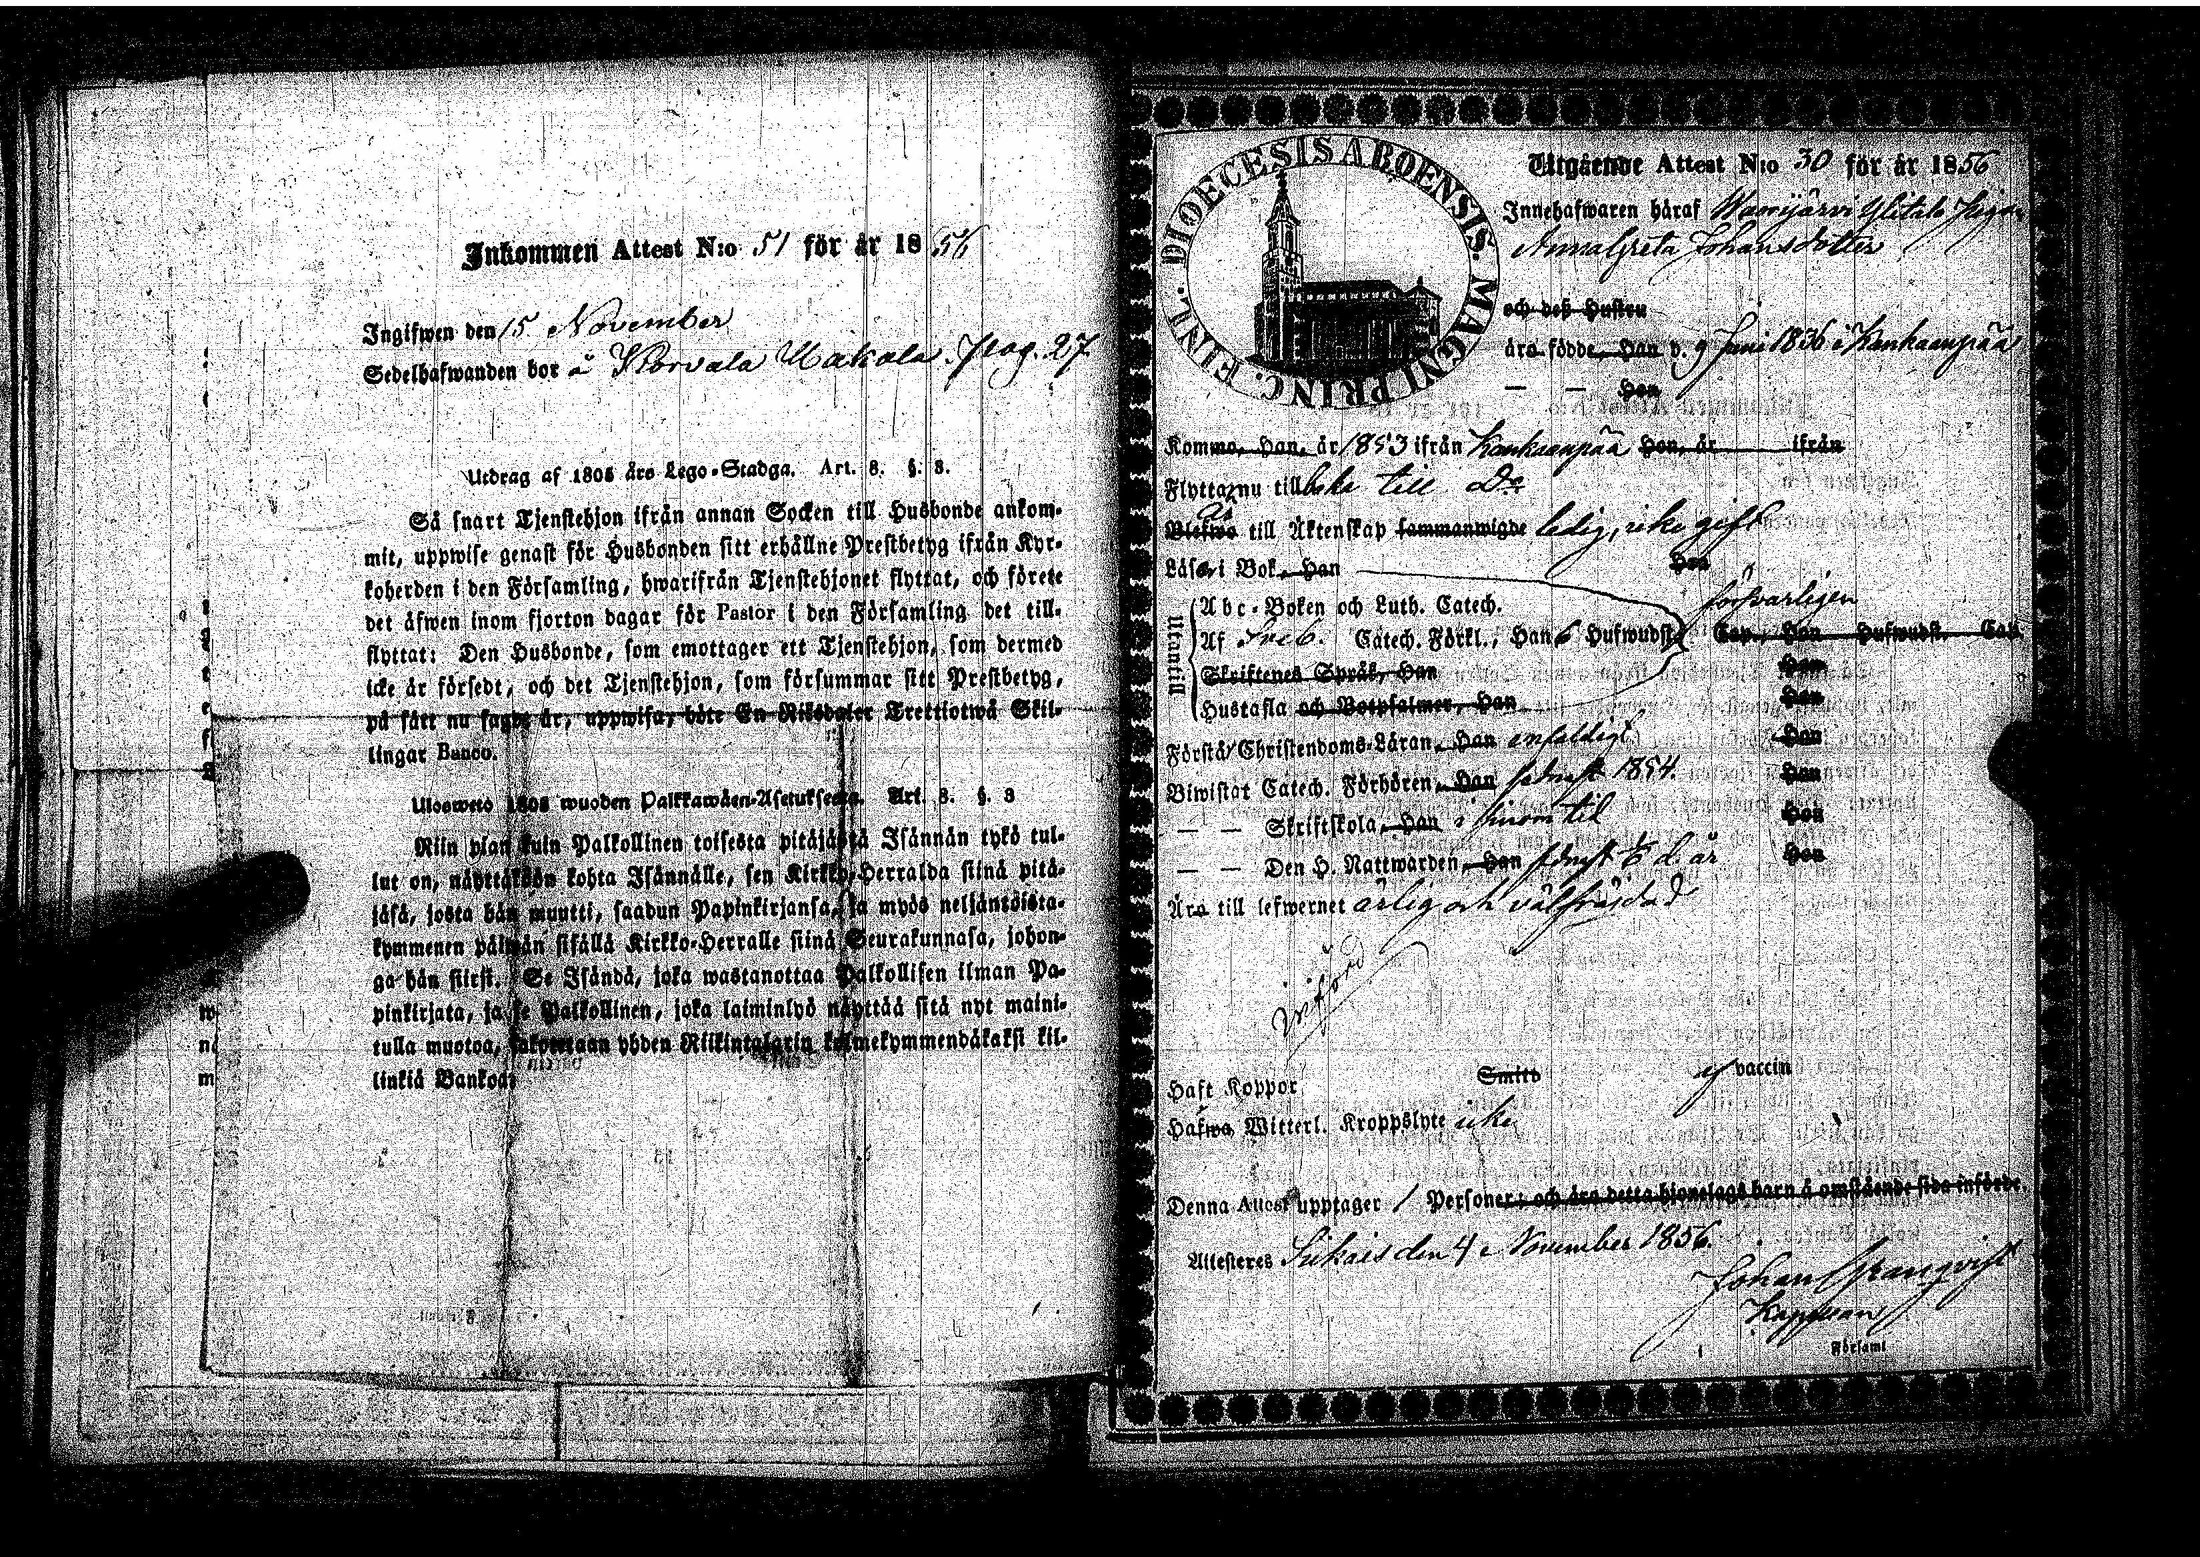 Inkommen Attest N:o 51 för år 1856
Ingifwen den 15 November
Sedelhafwanden bor å Korvala Makala. pag. 27
Utdrag af 1805 års Lego-Stadga. Art. 8. §. 3.
Så snart Tjenstehjon ifrån annan Socken till Husbonde ankom-
mit, uppwise genast för Husbonden sitt erhållne Prestbetyg ifrån Kyr-
koherden i den Församling, hwarifrån Tjenstehjonet flyttat, och förete
det äfwen inom fjorton dagar för Pastor i den Församling det till-
flyttat: Den Husbonde, som emottager ett Tjenstehjon, som dermed
icke är försedt, och det Tjenstehjon, som försummar sitt Prestbetyg,
på sätt nu sagdt är, uppwisa, böte En Riksdaler Trettiotwå Skil-
lingar Banco.
Ulosweto 1805 wuoden Palkkawäen-Asetuksesta. Art. 8. §. 3
Niin pian kuin Palkollinen toisesta pitäjästä Isännän tykö tul-
lut on, näyttäköön kohta Isännälle, sen Kirkko-Herralda siinä pitä-
jäsä, josta hän muutti, saadun Papinkirjansa, ja myös neljäntöista-
kymmenen päiwän sisällä Kirkko-Herralle siinä Seurakunnasa, johon-
ga hän siirsi. Se Isändä, joka wastanottaa Palkollisen ilman Pa-
pinkirjata, ja se Palkollinen, joka laiminlyö näyttää sitä nyt maini-
tulla muotoa, sakotetaan yhden Riikintalarin kolmekymmendäkaksi kil-
linkiä Bankoa.
DIOECESIS ABOENSIS. MAGNI PRINC. FINL.
Utgående Attest N:o 30 för år 1856
Innehafwaren häraf Wenijärvi Ylitalo Piga
Anna Greta Johansdotter
och deß Hustru
äro födde, Han d. 9 Juni 1836 i Kankaanpää
— — Hon
Kommo, Han, år 1853 ifrån Kankaanpää Hon, år ifrån
Flytta nu tillbaka till Do
Blefwo till Äktenskap sammanwigde ledig, icke gift
Läser i Bok, Han Hon
försvarligen
Utantill
Abc-Boken och Luth. Catech.
Af Sveb. Catech. Förkl., Han 6 Hufwudst. Cap., Hon Hufwudst. Cap.
Skriftenes Språk, Han Hon
Hustafla och Botpsalmer, Han Hon
Förstå Christendoms-Läran, Han enfaldigt Hon
Biwistat Catech. Förhören, Han sednast 1854. Hon
— — Skriftskola, Han i sinom tid Hon
— — Den H. Nattwarden, Han sednast d. år Hon
Äro till lefwernet ärlig och välfräjdad
införd
Haft Koppor Smitt ej vaccin
Hafwa Witterl. Kroppslyte icke
Denna Attest upptager 1 Personer; och äro detta hjonelags barn å omstående sida införde.
Attesteres Siikais den 4 November 1856.
Johan Granqvist
Kapplan
Församl